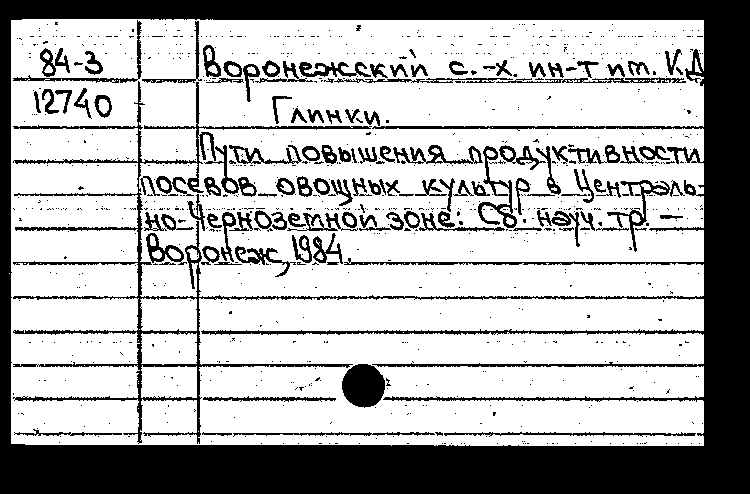 84-3 Воронежский с.-х. ин-т им. К.Д
12740 Глинки.
Пути повышения продуктивности
посевов овощных культур в Централь-
но-Черноземной зоне: Сб. науч. тр. —
Воронеж, 1984.